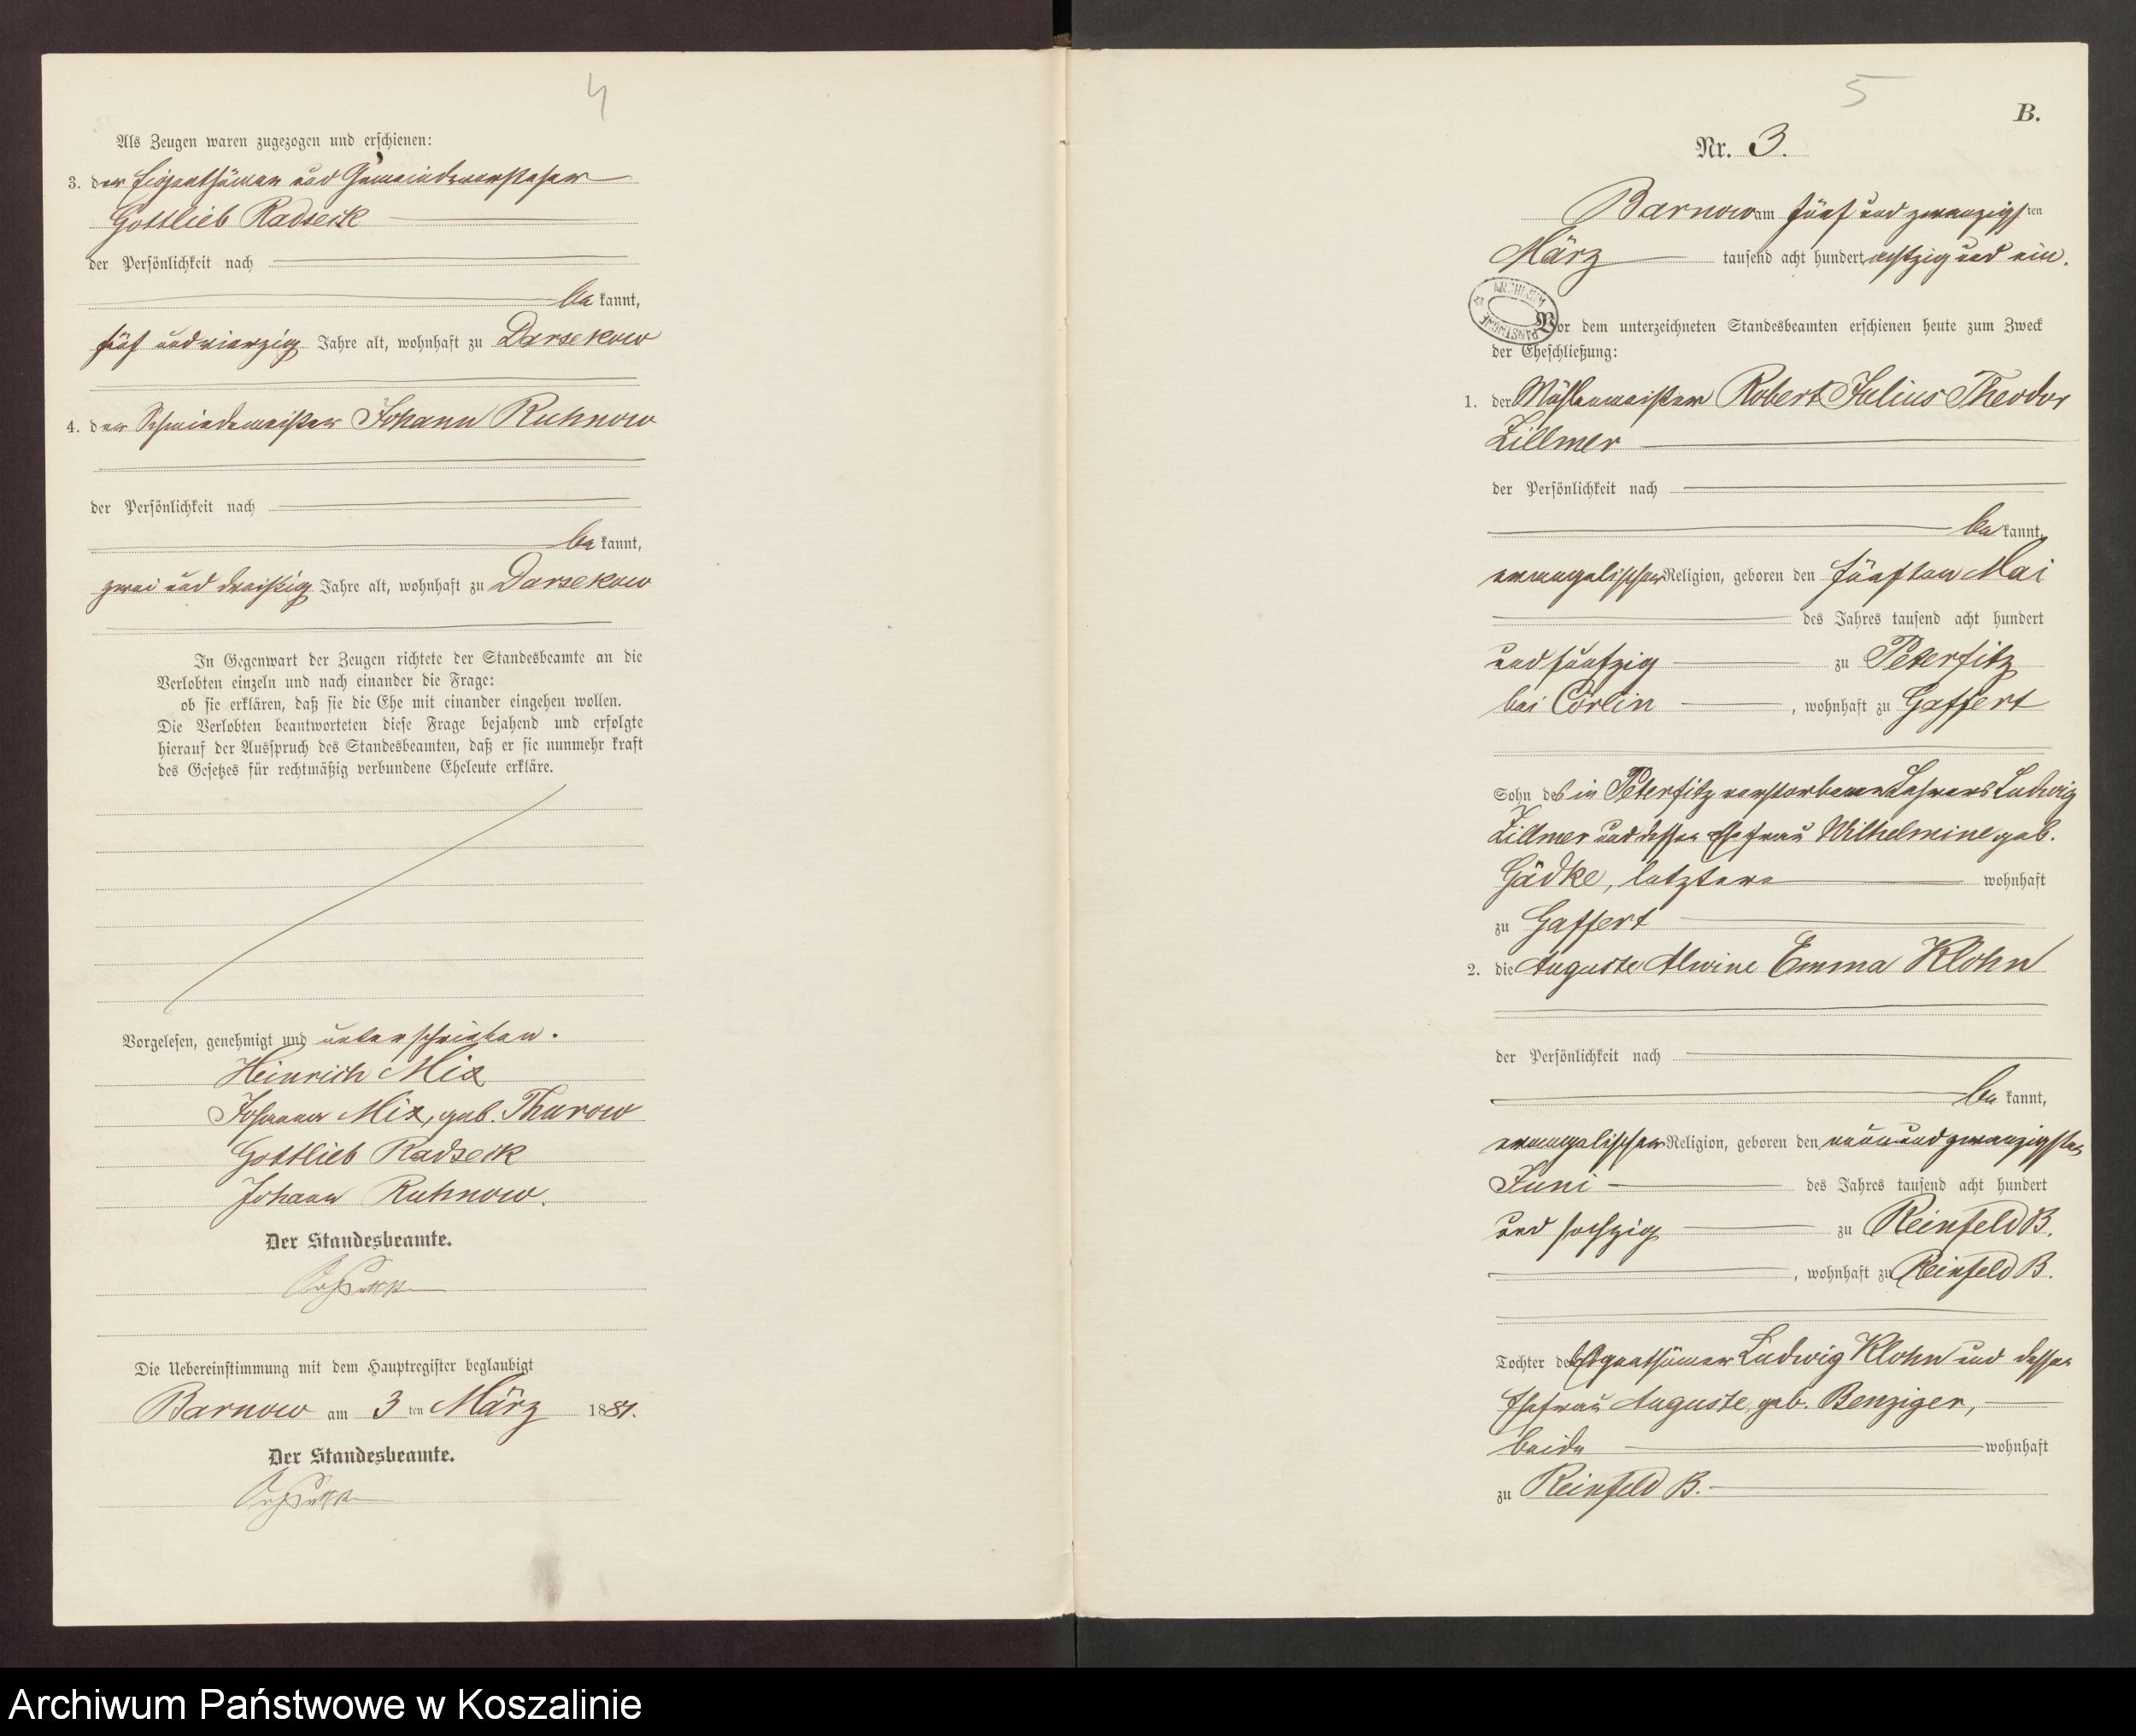 4
Als Zeugen waren zugezogen und erschienen:
3. der Eigenthümer und Gemeindevorsteher
Gottlieb Radseck
der Persönlichkeit nach
be kannt,
fünf und vierzig Jahre alt, wohnhaft zu Darsekow
4. der Schmiedemeister Johann Ruhnow
der Persönlichkeit nach
be kannt,
zwei und dreißig Jahre alt, wohnhaft zu Darsekow
In Gegenwart der Zeugen richtete der Standesbeamte an die
Verlobten einzeln und nach einander die Frage:
ob sie erklären, daß sie die Ehe mit einander eingehen wollen.
Die Verlobten beantworteten diese Frage bejahend und erfolgte
hierauf der Ausspruch des Standesbeamten, daß er sie nunmehr kraft
des Gesetzes für rechtmäßig verbundene Eheleute erkläre.
Vorgelesen, genehmigt und unterschrieben.
Heinrich Mix
Johanna Mix, geb. Thurow
Gottlieb Radseck
Johann Ruhnow.
Der Standesbeamte.
Die Uebereinstimmung mit dem Hauptregister beglaubigt
Barnow am 3 ten März 1881.
Der Standesbeamte.
5
B.
Nr. 3.
Barnow am fünf und zwanzigsten
März tausend acht hundert achtzig und ein.
ARCHIWUM PAŃSTWOWE
Vor dem unterzeichneten Standesbeamten erschienen heute zum Zweck
der Eheschließung:
1. der Mühlenmeister Robert Julius Theodor
Zillmer
der Persönlichkeit nach
be kannt,
evangelischer Religion, geboren den fünften Mai
des Jahres tausend acht hundert
und fünfzig zu Peterfitz
bei Cörlin, wohnhaft zu Gaffert
Sohn des in Peterfitz verstorbenen Lehrers Ludwig
Zillmer und dessen Ehefrau Wilhelmine geb.
Gädke, letztere wohnhaft
zu Gaffert
2. die Auguste Alwine Emma Klohn
der Persönlichkeit nach
be kannt,
evangelischer Religion, geboren den neunundzwanzigsten
Juni des Jahres tausend acht hundert
und sechzig zu Reinfeld B.
, wohnhaft zu Reinfeld B.
Tochter des Eigenthümer Ludwig Klohn und dessen
Ehefrau Auguste, geb. Benziger,
beide wohnhaft
zu Reinfeld B.
Archiwum Państwowe w Koszalinie